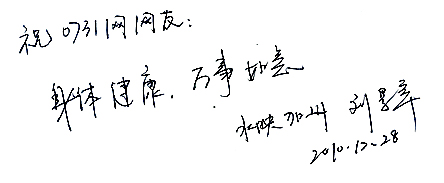 祝0731网网友:
身体健康.万事如意
水映加州 刘
2010.12.28